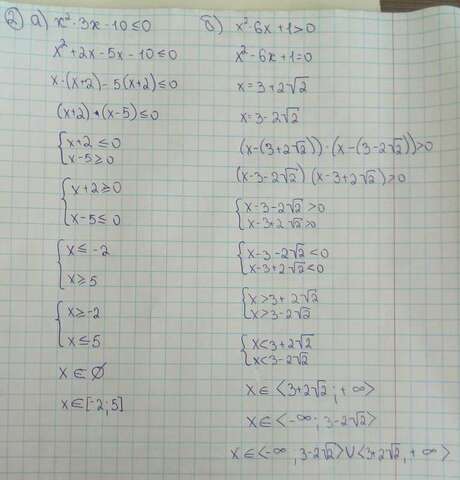 ② а) x²-3x-10≤0
x²+2x-5x-10≤0
x·(x+2)-5(x+2)≤0
(x+2)·(x-5)≤0
{x+2≤0
x-5≥0
{x+2≥0
x-5≤0
{x≤-2
x≥5
{x≥-2
x≤5
x∈∅
x∈[-2;5]
б) x²-6x+1>0
x²-6x+1=0
x=3+2√2
x=3-2√2
(x-(3+2√2))·(x-(3-2√2))>0
(x-3-2√2)(x-3+2√2)>0
{x-3-2√2>0
x-3+2√2>0
{x-3-2√2<0
x-3+2√2<0
{x>3+2√2
x>3-2√2
{x<3+2√2
x<3-2√2
x∈<3+2√2;+∞>
x∈<-∞;3-2√2>
x∈<-∞,3-2√2>∪<3+2√2,+∞>